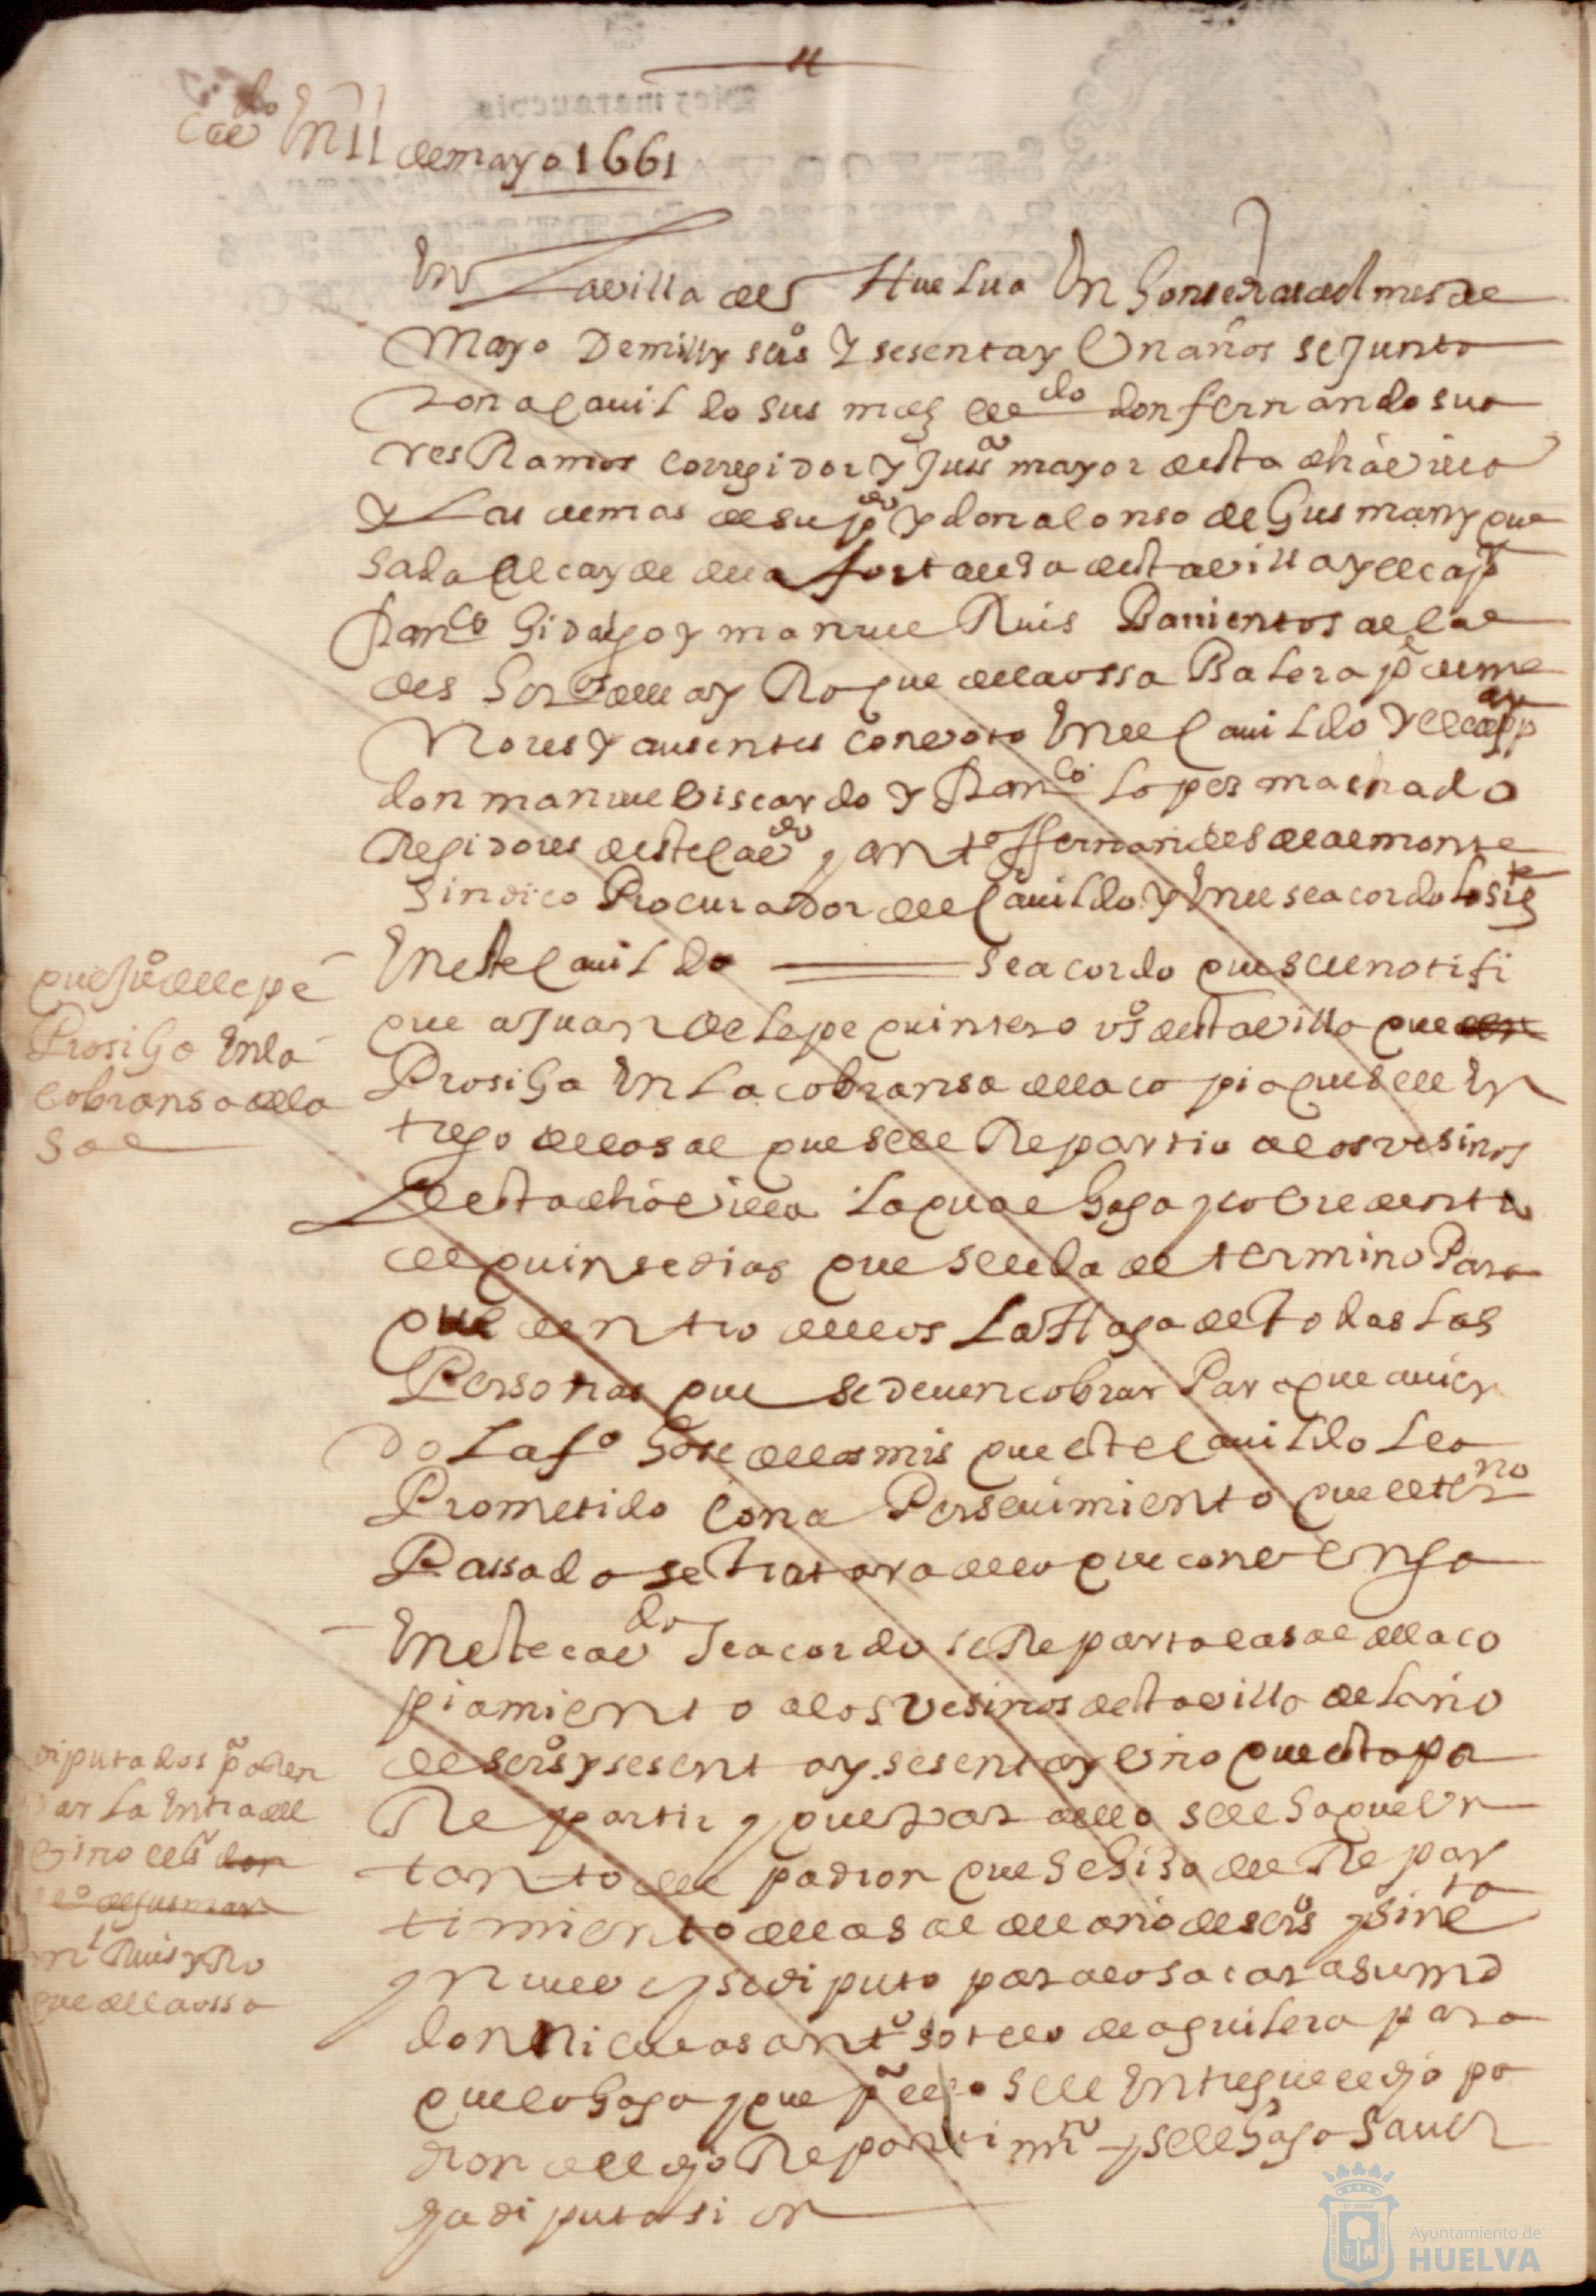 Cavdo En 11 de mayo 1661
En la villa de Huelua En honse dias del mes de
Mayo De mill y seisos Y sesenta y Un años se Junto
con a Cauildo sus mds el Ldo don fernando sua
res Ramos corregidor Y Jusa mayor desta dha villa
Y Las demas de su pdo Y don alonso de Gusman y que
sada alcayde de la fortaleza desta villa y el cap
franco hidalgo y manuel Ruis Barrientos alcal
des hordos della y Roque de la ossa Balera pe de me
Nores Y ausentes con voto En el Cauildo Y el capp
don manuel Biscardo Y franco Lopes machado
Regidores deste Cavdo y anto ffernandes de almonte
Sindico Procurador del Cauildo Y En el se acordo Lo sigte
En este Cauildo se acordo que se le notifi
que a Juan de Lepe quintero vo desta villa que
Prosiga En La cobransa de la copia que se le En
trego de la sal que se le Repartio a los vesinos
desta dha villa la qual haga y cobre dentro
de quinse dias que se le da de termino Para
que dentro dellos La Haga de todas Las
Personas que se deuen cobrar Para que auien
do La fo Gose de las mis que este Cauildo Le a
Prometido Con a Perseuimiento que el terno
Passado se tratara de lo que convenga
En este cavdo Se acordo se Reparta la sal del aco
piamiento a los Vesinos desta villa del año
de seisos y sesenta y sesenta y Uno que esta por
Repartir y que por ello se le saque Un
tanto del padron que se hiso del Repar
timiento de la sal del año de seisos y sinqta
y nueve y se diputo para lo sacar a su md
don Nicolas anto sotelo de aguilera para
que lo haga y que pa ello se le Entregue el dho pa
dron del dho Repartimto y se le haga sauer
la diputasion
que Juo de lepe
Prosiga En la
cobransa de la
Sal
diputados pa aRen
dar La Entra del
Vino el sr don
alo de gusman
ml Ruis y Ro
que de la ossa
Ayuntamiento de
HUELVA